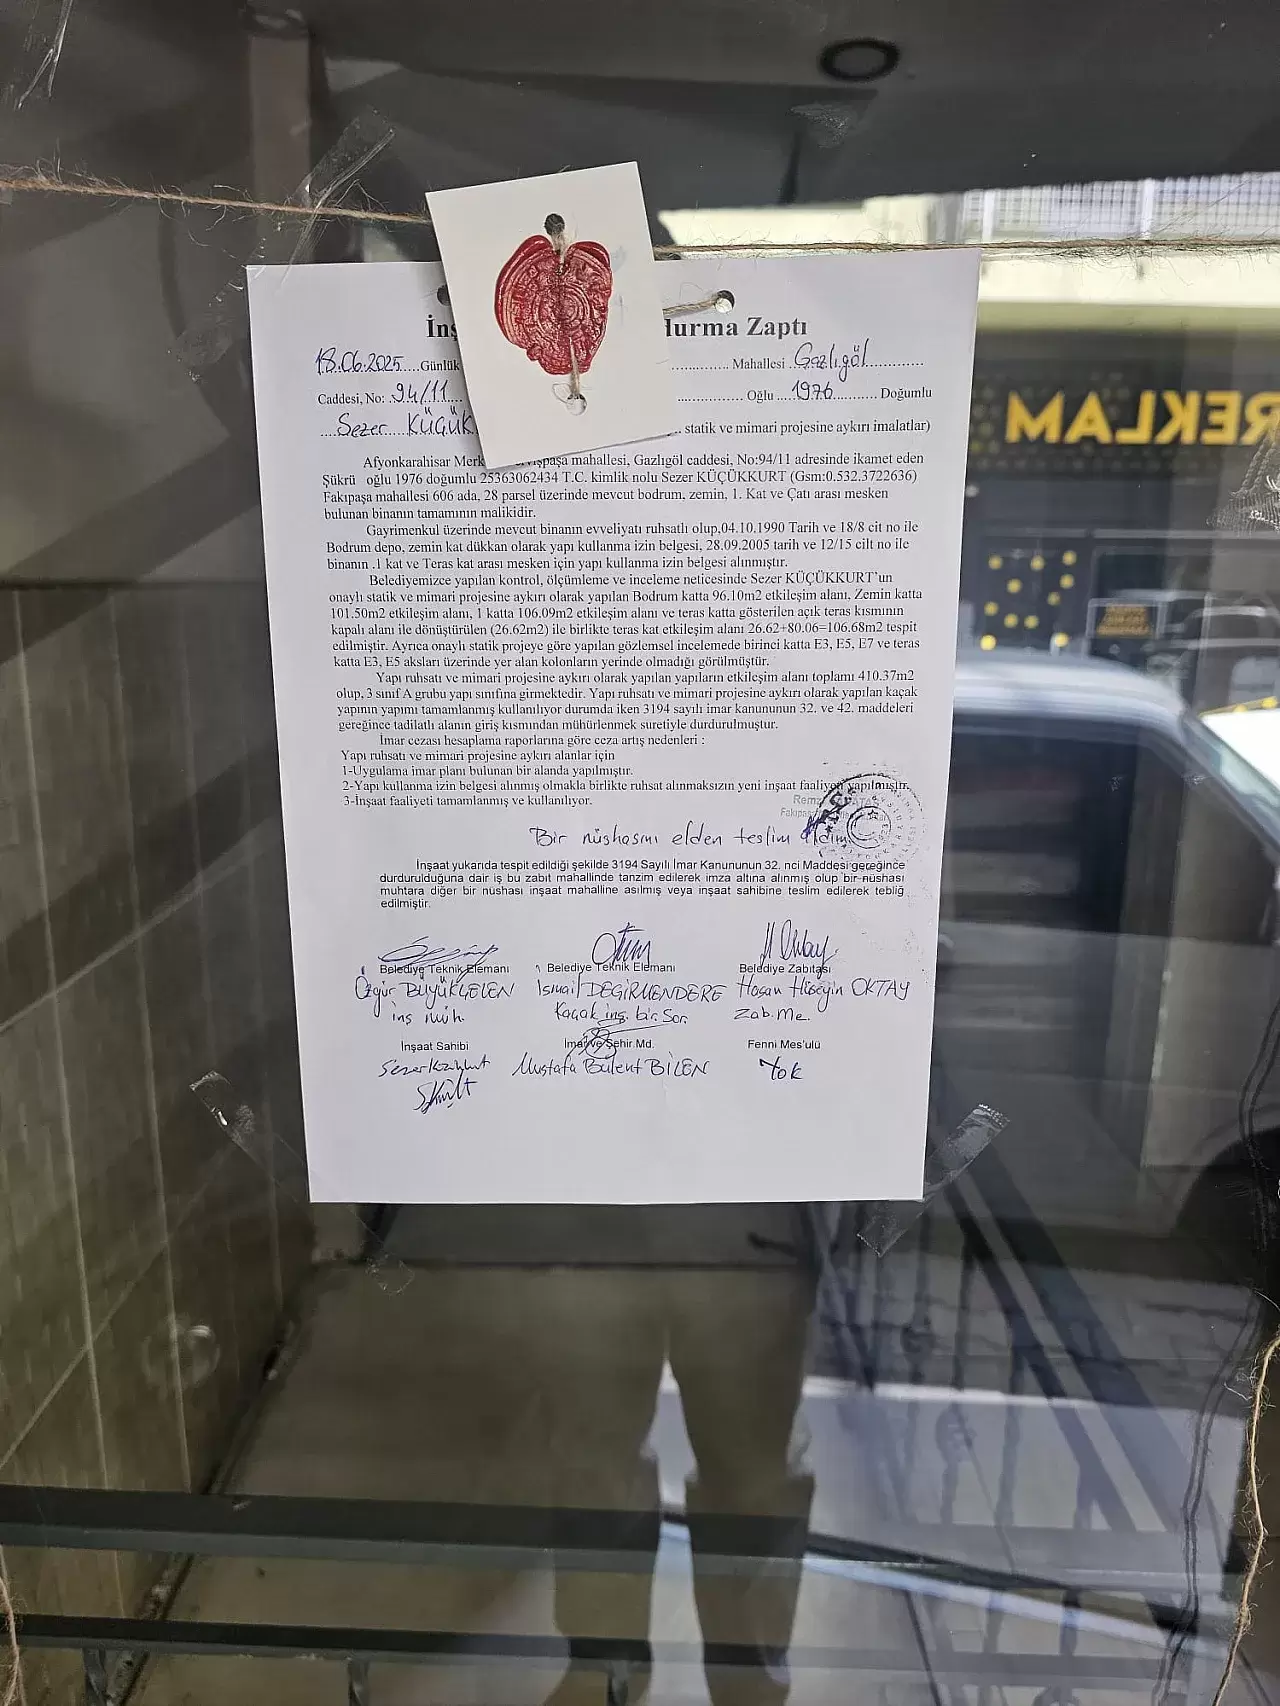 İnş durma Zaptı
18.06.2025....Günlük ........... Mahallesi ..Gazlıgöl............
Caddesi, No: .94/11.... ................ Oğlu ....1976........... Doğumlu
....Sezer....KÜÇÜK ... statik ve mimari projesine aykırı imalatlar)
Afyonkarahisar Merk mahallesi, Gazlıgöl caddesi, No:94/11 adresinde ikamet eden
Şükrü oğlu 1976 doğumlu 25363062434 T.C. kimlik nolu Sezer KÜÇÜKKURT (Gsm:0.532.3722636)
Fakıpaşa mahallesi 606 ada, 28 parsel üzerinde mevcut bodrum, zemin, 1. Kat ve Çatı arası mesken
bulunan binanın tamamının malikidir.
Gayrimenkul üzerinde mevcut binanın evveliyatı ruhsatlı olup,04.10.1990 Tarih ve 18/8 cit no ile
Bodrum depo, zemin kat dükkan olarak yapı kullanma izin belgesi, 28.09.2005 tarih ve 12/15 cilt no ile
binanın .1 kat ve Teras kat arası mesken için yapı kullanma izin belgesi alınmıştır.
Belediyemizce yapılan kontrol, ölçümleme ve inceleme neticesinde Sezer KÜÇÜKKURT'un
onaylı statik ve mimari projesine aykırı olarak yapılan Bodrum katta 96.10m2 etkileşim alanı, Zemin katta
101.50m2 etkileşim alanı, 1 katta 106.09m2 etkileşim alanı ve teras katta gösterilen açık teras kısmının
kapalı alanı ile dönüştürülen (26.62m2) ile birlikte teras kat etkileşim alanı 26.62+80.06=106.68m2 tespit
edilmiştir. Ayrıca onaylı statik projeye göre yapılan gözlemsel incelemede birinci katta E3, E5, E7 ve teras
katta E3, E5 aksları üzerinde yer alan kolonların yerinde olmadığı görülmüştür.
Yapı ruhsatı ve mimari projesine aykırı olarak yapılan yapıların etkileşim alanı toplamı 410.37m2
olup, 3 sınıf A grubu yapı sınıfına girmektedir. Yapı ruhsatı ve mimari projesine aykırı olarak yapılan kaçak
yapının yapımı tamamlanmış kullanılıyor durumda iken 3194 sayılı imar kanununun 32. ve 42. maddeleri
gereğince tadilatlı alanın giriş kısmından mühürlenmek suretiyle durdurulmuştur.
İmar cezası hesaplama raporlarına göre ceza artış nedenleri :
Yapı ruhsatı ve mimari projesine aykırı alanlar için
1-Uygulama imar planı bulunan bir alanda yapılmıştır.
2-Yapı kullanma izin belgesi alınmış olmakla birlikte ruhsat alınmaksızın yeni inşaat faaliyeti yapılmıştır.
3-İnşaat faaliyeti tamamlanmış ve kullanılıyor.
Bir nüshasını elden teslim aldım
İnşaat yukarıda tespit edildiği şekilde 3194 Sayılı İmar Kanununun 32. nci Maddesi gereğince
durdurulduğuna dair iş bu zabıt mahallinde tanzim edilerek imza altına alınmış olup bir nüshası
muhtara diğer bir nüshası inşaat mahalline asılmış veya inşaat sahibine teslim edilerek tebliğ
edilmiştir.
Belediye Teknik Elemanı Belediye Teknik Elemanı Belediye Zabıtası
Özgür BÜYÜKGELEN İsmail DEĞİRMENDERE Hasan Hüseyin OKTAY
inş müh. Kaçak inş. bir. Sor. Zab. Me.
İnşaat Sahibi İmar ve Şehir Md. Fenni Mes'ulü
Mustafa Bülent BİLEN Yok
REKLAM